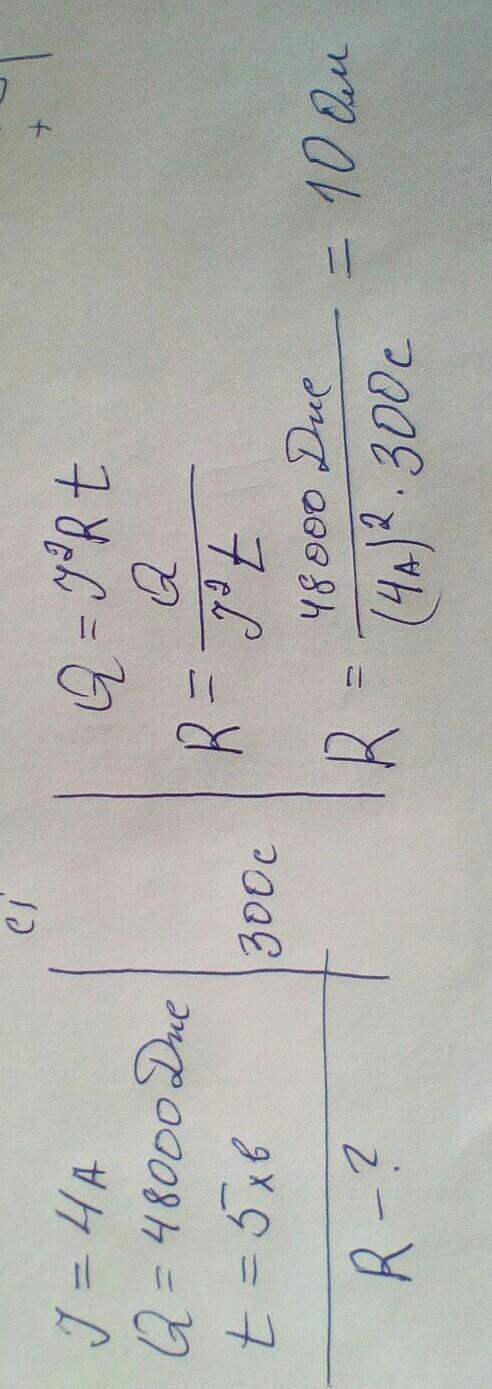 СІ
I = 4А
Q = 48000 Дж
t = 5 хв
300с
R - ?
Q = I²Rt
R = Q / I²t
R = 48000 Дж / (4А)² · 300с = 10 Ом
+